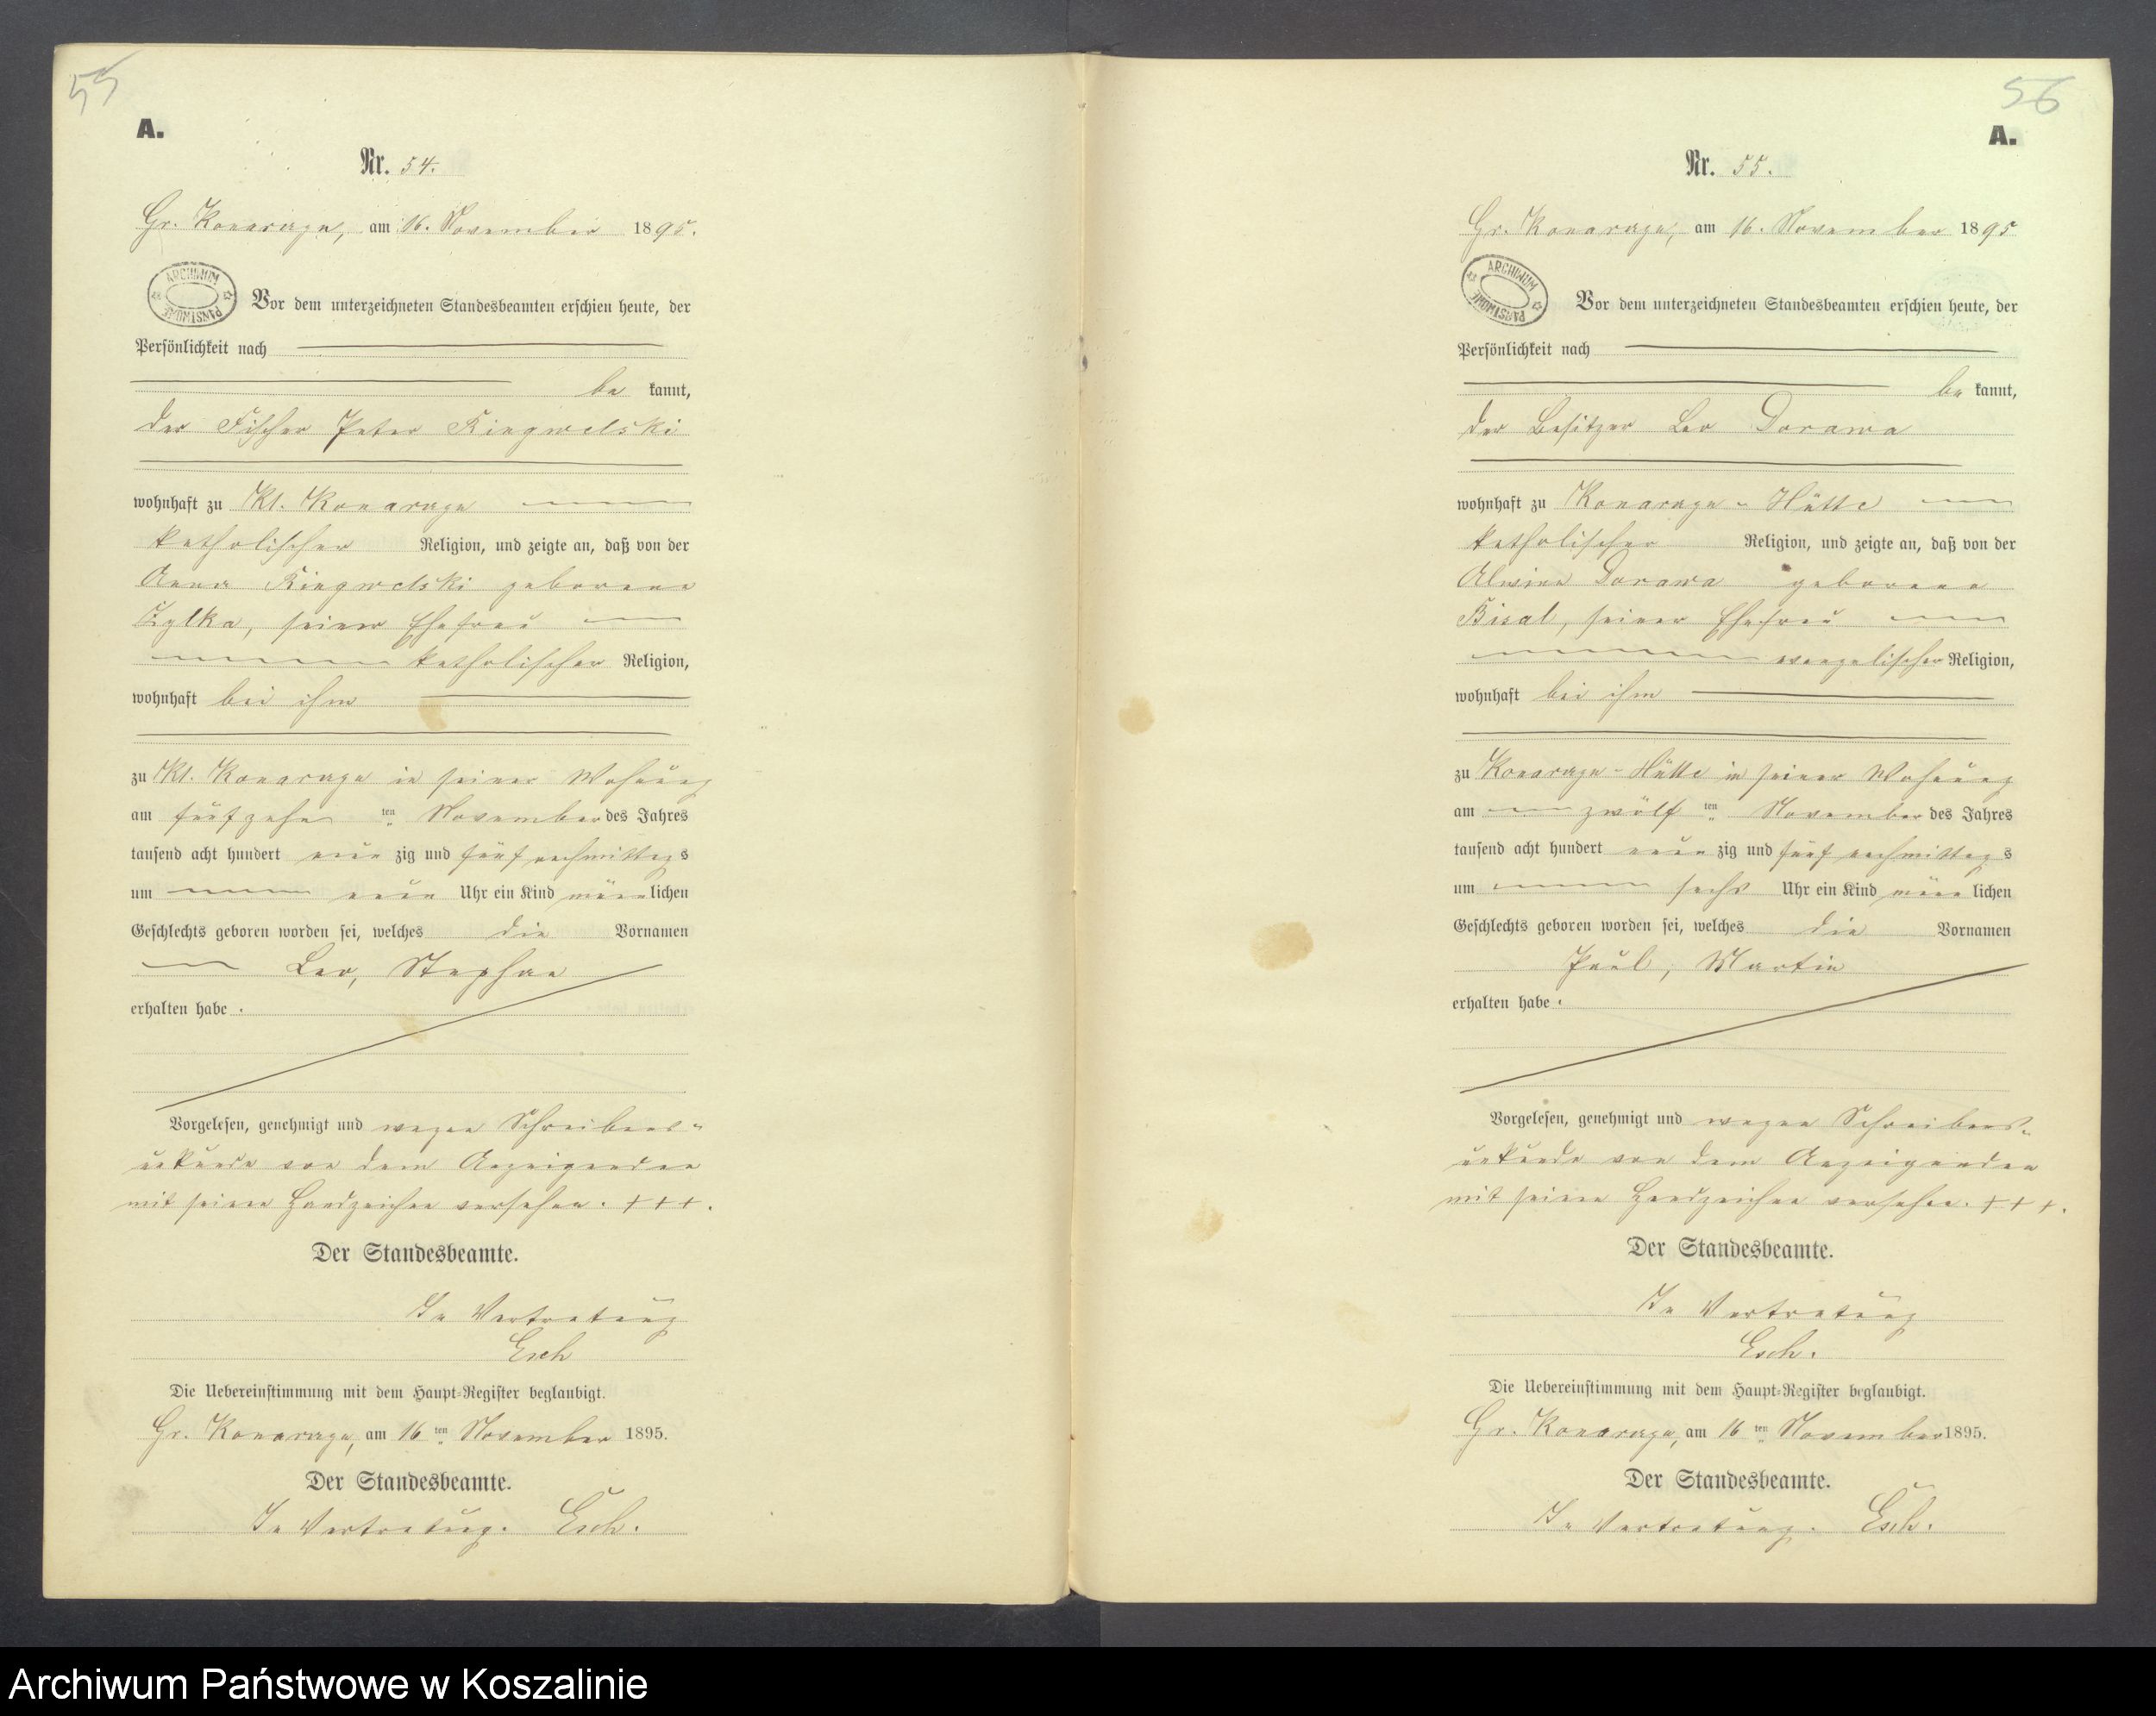 55
A.
Nr. 54.
Gr. Konarzyn, am 16. November 1895.
ARCHIWUM PAŃSTWOWE
Vor dem unterzeichneten Standesbeamten erschien heute, der
Persönlichkeit nach
be kannt,
der Fischer Peter Kiegwelski
wohnhaft zu Kl. Konarzyn
katholischer Religion, und zeigte an, daß von der
Anna Kiegwelski geborene
Zylka, seiner Ehefrau
katholischer Religion,
wohnhaft bei ihm
zu Kl. Konarzyn in seiner Wohnung
am fünfzehn ten November des Jahres
tausend acht hundert neun zig und fünf nachmittag s
um neun Uhr ein Kind männ lichen
Geschlechts geboren worden sei, welches die Vornamen
Leo, Stephan
erhalten habe.
Vorgelesen, genehmigt und wegen Schreibens-
unkunde von dem Anzeigenden
mit seinen Handzeichen versehen. +++.
Der Standesbeamte.
In Vertretung
Esch
Die Uebereinstimmung mit dem Haupt-Register beglaubigt.
Gr. Konarzyn, am 16 ten November 1895.
Der Standesbeamte.
In Vertretung. Esch.
56
A.
Nr. 55.
Gr. Konarzyn, am 16. November 1895
ARCHIWUM PAŃSTWOWE
Vor dem unterzeichneten Standesbeamten erschien heute, der
Persönlichkeit nach
be kannt,
der Besitzer Leo Dorawa
wohnhaft zu Konarzyn-Hütte
katholischer Religion, und zeigte an, daß von der
Alwine Dorawa geborene
Bisal, seiner Ehefrau
evangelischer Religion,
wohnhaft bei ihm
zu Konarzyn-Hütte in seiner Wohnung
am zwölf ten November des Jahres
tausend acht hundert neun zig und fünf nachmittag s
um sechs Uhr ein Kind männ lichen
Geschlechts geboren worden sei, welches die Vornamen
Paul, Martin
erhalten habe.
Vorgelesen, genehmigt und wegen Schreibens-
unkunde von dem Anzeigenden
mit seinen Handzeichen versehen. +++.
Der Standesbeamte.
In Vertretung
Esch.
Die Uebereinstimmung mit dem Haupt-Register beglaubigt.
Gr. Konarzyn, am 16 ten November 1895.
Der Standesbeamte.
In Vertretung. Esch.
Archiwum Państwowe w Koszalinie